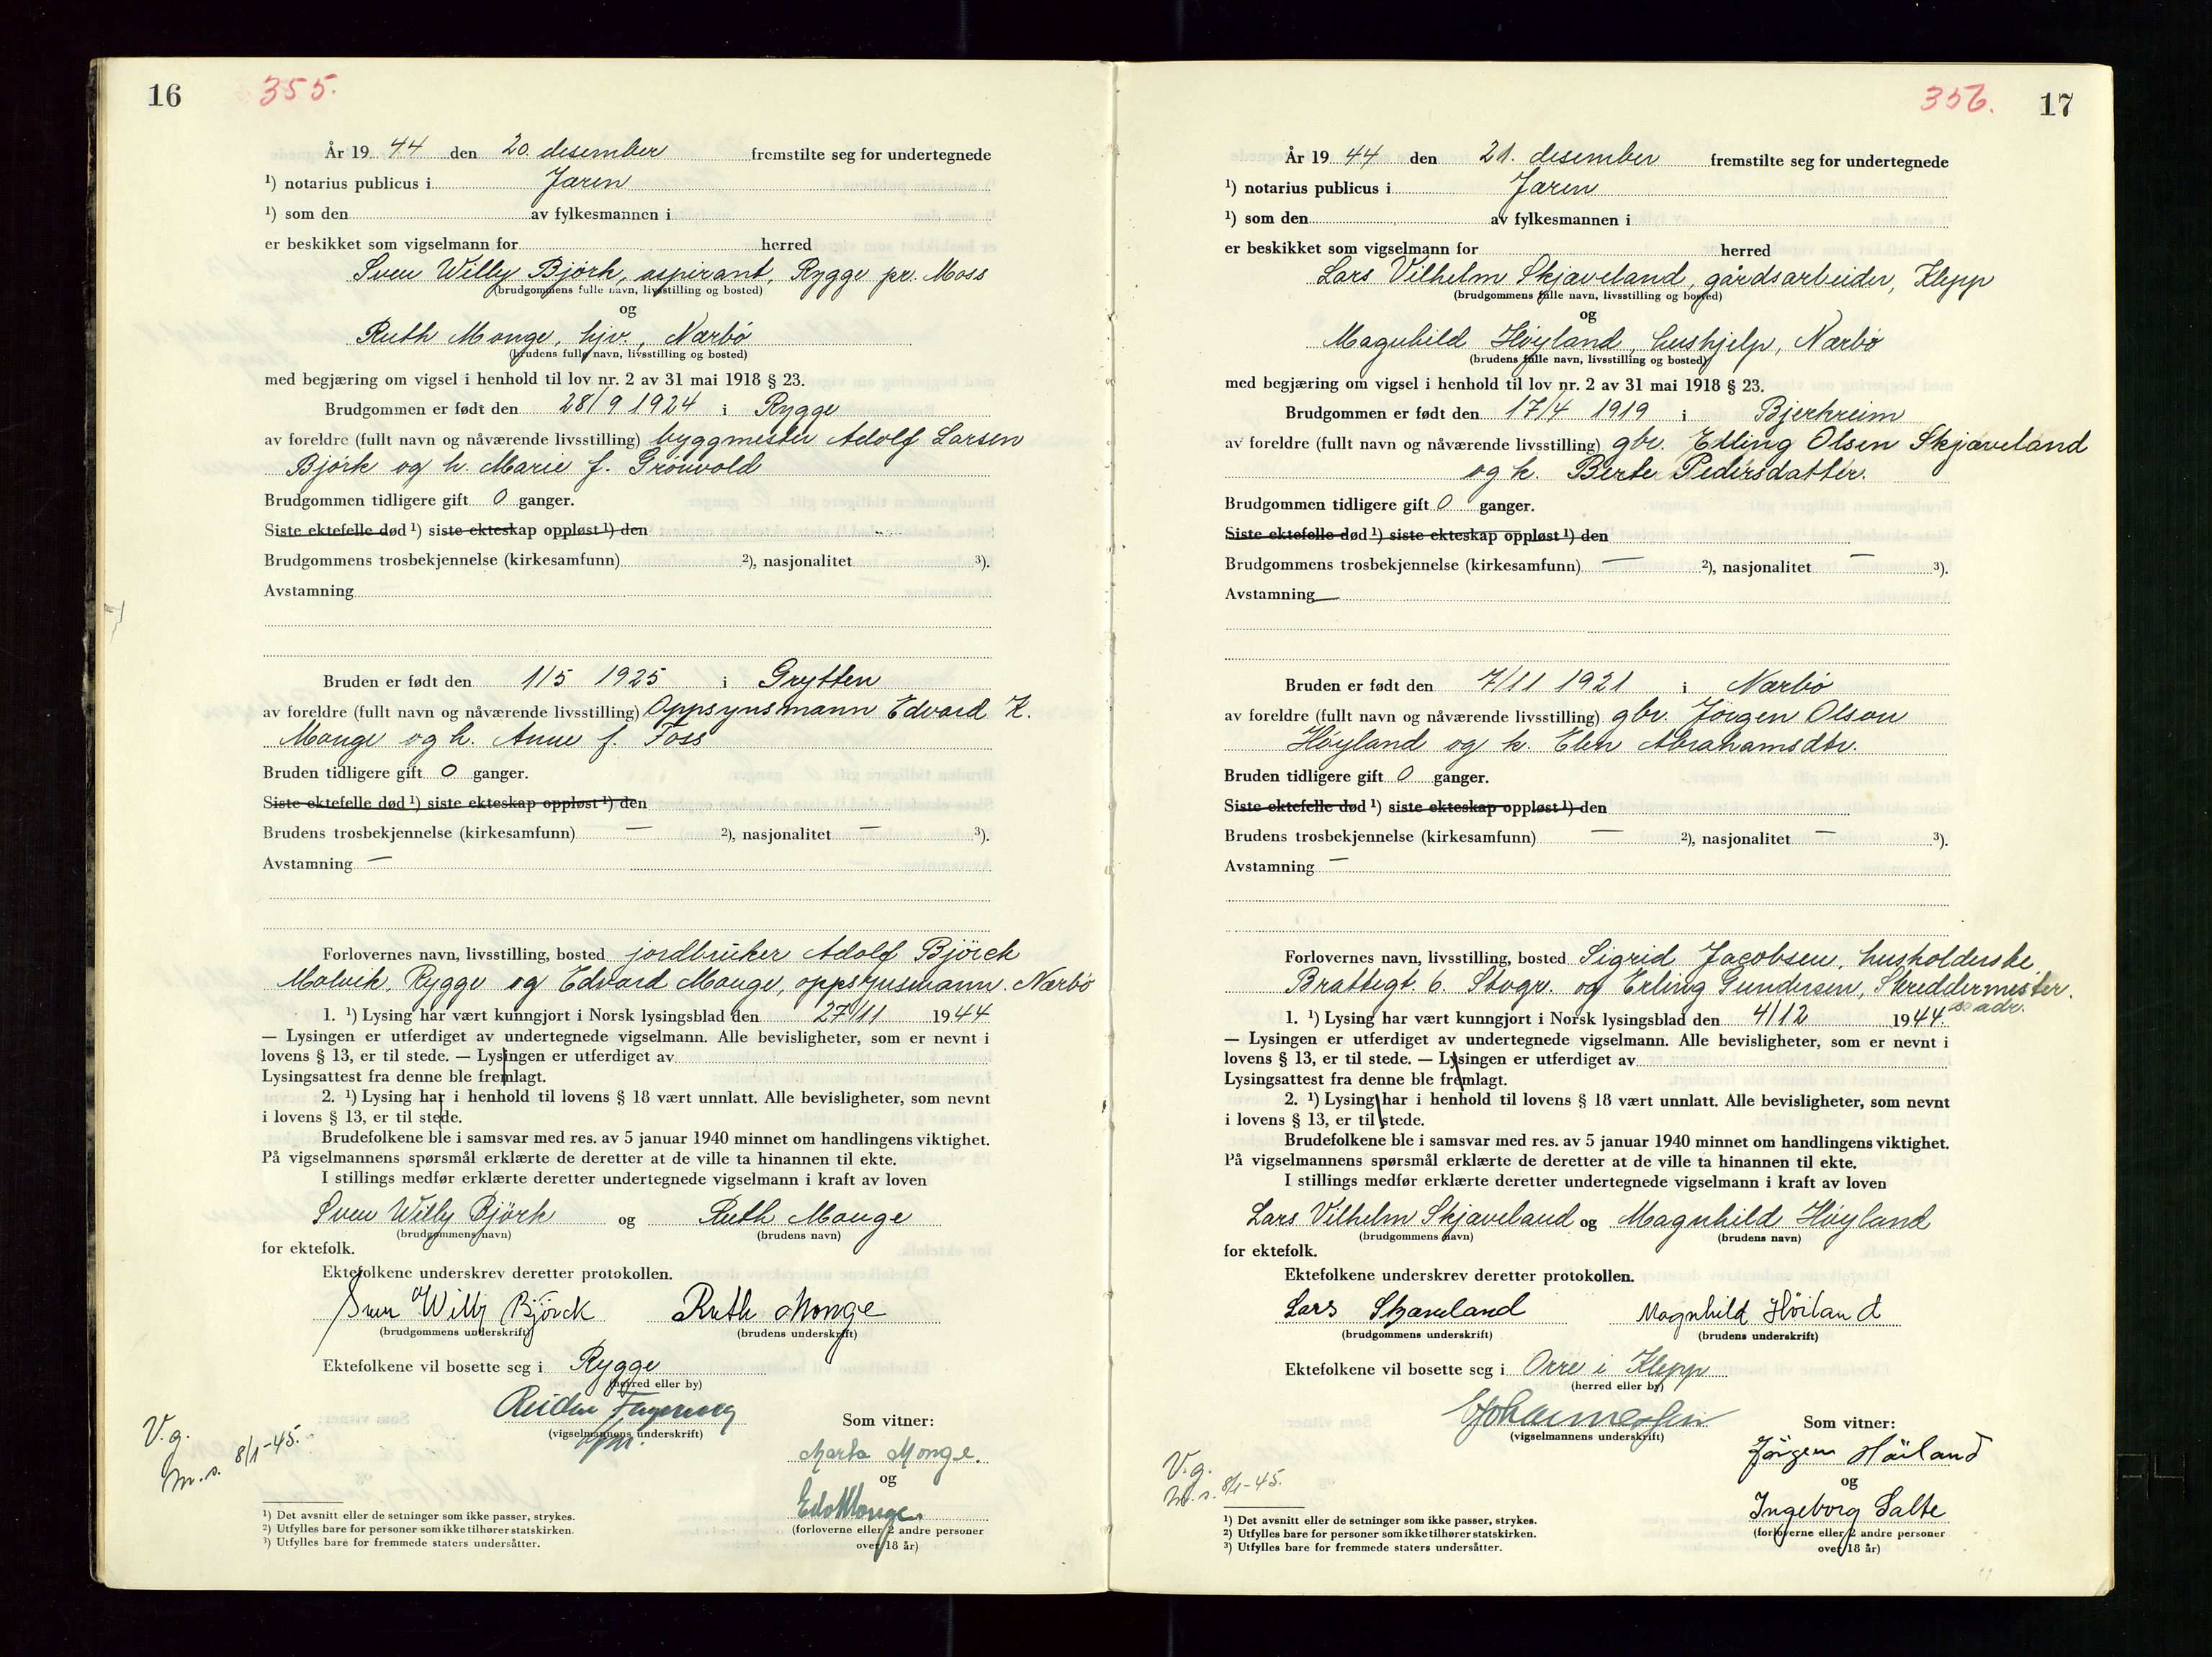 16
355.
År 19 44 den 20. desember fremstilte seg for undertegnede
¹) notarius publicus i Jæren
¹) som den av fylkesmannen i
er beskikket som vigselmann for herred
Sven Willy Björk, aspirant, Rygge pr. Moss
(brudgommens fulle navn, livsstilling og bosted)
og
Ruth Monge, hjv., Nærbö
(brudens fulle navn, livsstilling og bosted)
med begjæring om vigsel i henhold til lov nr. 2 av 31 mai 1918 § 23.
Brudgommen er født den 28/9 1924 i Rygge
av foreldre (fullt navn og nåværende livsstilling) byggmester Adolf Larsen
Björk og h. Marie f. Grönvold
Brudgommen tidligere gift 0 ganger.
Siste ektefelle død ¹) siste ekteskap oppløst ¹) den
Brudgommens trosbekjennelse (kirkesamfunn) ²), nasjonalitet ³).
Avstamning
Bruden er født den 1/5 1925 i Grytten
av foreldre (fullt navn og nåværende livsstilling) Oppsynsmann Edvard K.
Monge og h. Anne f. Foss
Bruden tidligere gift 0 ganger.
Siste ektefelle død ¹) siste ekteskap oppløst ¹) den
Brudens trosbekjennelse (kirkesamfunn) — ²), nasjonalitet — ³).
Avstamning —
Forlovernes navn, livsstilling, bosted jordbruker Adolf Björck
Malvik, Rygge og Edvard Monge, oppsynsmann. Nærbö
1. ¹) Lysing har vært kunngjort i Norsk lysingsblad den 27/11 1944
— Lysingen er utferdiget av undertegnede vigselmann. Alle bevisligheter, som er nevnt i
lovens § 13, er til stede. — Lysingen er utferdiget av
Lysingsattest fra denne ble fremlagt.
2. ¹) Lysing har i henhold til lovens § 18 vært unnlatt. Alle bevisligheter, som nevnt
i lovens § 13, er til stede.
Brudefolkene ble i samsvar med res. av 5 januar 1940 minnet om handlingens viktighet.
På vigselmannens spørsmål erklærte de deretter at de ville ta hinannen til ekte.
I stillings medfør erklærte deretter undertegnede vigselmann i kraft av loven
Sven Willy Björk og Ruth Monge
(brudgommens navn) (brudens navn)
for ektefolk.
Ektefolkene underskrev deretter protokollen.
Sven Willy Björck Ruth Monge
(brudgommens underskrift) (brudens underskrift)
Ektefolkene vil bosette seg i Rygge
(herred eller by)
Reidar
(vigselmannens underskrift)
Som vitner:
Marta Monge.
og
Edv Monge.
(forloverne eller 2 andre personer
over 18 år)
V.g.
m.s. 8/1-45.
¹) Det avsnitt eller de setninger som ikke passer, strykes.
²) Utfylles bare for personer som ikke tilhører statskirken.
³) Utfylles bare for fremmede staters undersåtter.
356.
17
År 19 44 den 21. desember fremstilte seg for undertegnede
¹) notarius publicus i Jæren
¹) som den av fylkesmannen i
er beskikket som vigselmann for herred
Lars Vilhelm Skjæveland, gårdsarbeider, Klepp
(brudgommens fulle navn, livsstilling og bosted)
og
Magnhild Høyland, hushjelp, Nærbö
(brudens fulle navn, livsstilling og bosted)
med begjæring om vigsel i henhold til lov nr. 2 av 31 mai 1918 § 23.
Brudgommen er født den 17/4 1919 i Bjerkreim
av foreldre (fullt navn og nåværende livsstilling) gbr. Edling Olsen Skjæveland
og h. Berte Pedersdatter.
Brudgommen tidligere gift 0 ganger.
Siste ektefelle død ¹) siste ekteskap oppløst ¹) den
Brudgommens trosbekjennelse (kirkesamfunn) — ²), nasjonalitet — ³).
Avstamning —
Bruden er født den 7/11 1921 i Nærbö
av foreldre (fullt navn og nåværende livsstilling) gbr. Jörgen Olson
Høyland og h. Elen Abrahamsdtr.
Bruden tidligere gift 0 ganger.
Siste ektefelle død ¹) siste ekteskap oppløst ¹) den
Brudens trosbekjennelse (kirkesamfunn) — ²), nasjonalitet — ³).
Avstamning —
Forlovernes navn, livsstilling, bosted Sigrid Jacobsen, husholderske
Brattegt. 6. Stvgr. og Erling Gundersen, Skreddermester.
s. adr.
1. ¹) Lysing har vært kunngjort i Norsk lysingsblad den 4/12 1944.
— Lysingen er utferdiget av undertegnede vigselmann. Alle bevisligheter, som er nevnt i
lovens § 13, er til stede. — Lysingen er utferdiget av
Lysingsattest fra denne ble fremlagt.
2. ¹) Lysing har i henhold til lovens § 18 vært unnlatt. Alle bevisligheter, som nevnt
i lovens § 13, er til stede.
Brudefolkene ble i samsvar med res. av 5 januar 1940 minnet om handlingens viktighet.
På vigselmannens spørsmål erklærte de deretter at de ville ta hinannen til ekte.
I stillings medfør erklærte deretter undertegnede vigselmann i kraft av loven
Lars Vilhelm Skjæveland og Magnhild Høyland
(brudgommens navn) (brudens navn)
for ektefolk.
Ektefolkene underskrev deretter protokollen.
Lars Skjæveland Magnhild Höiland
(brudgommens underskrift) (brudens underskrift)
Ektefolkene vil bosette seg i Orre i Klepp
(herred eller by)
(vigselmannens underskrift)
Som vitner:
Jörgen Höiland
og
Ingeborg Salte
(forloverne eller 2 andre personer
over 18 år)
V.g.
m.s. 8/1-45.
¹) Det avsnitt eller de setninger som ikke passer, strykes.
²) Utfylles bare for personer som ikke tilhører statskirken.
³) Utfylles bare for fremmede staters undersåtter.